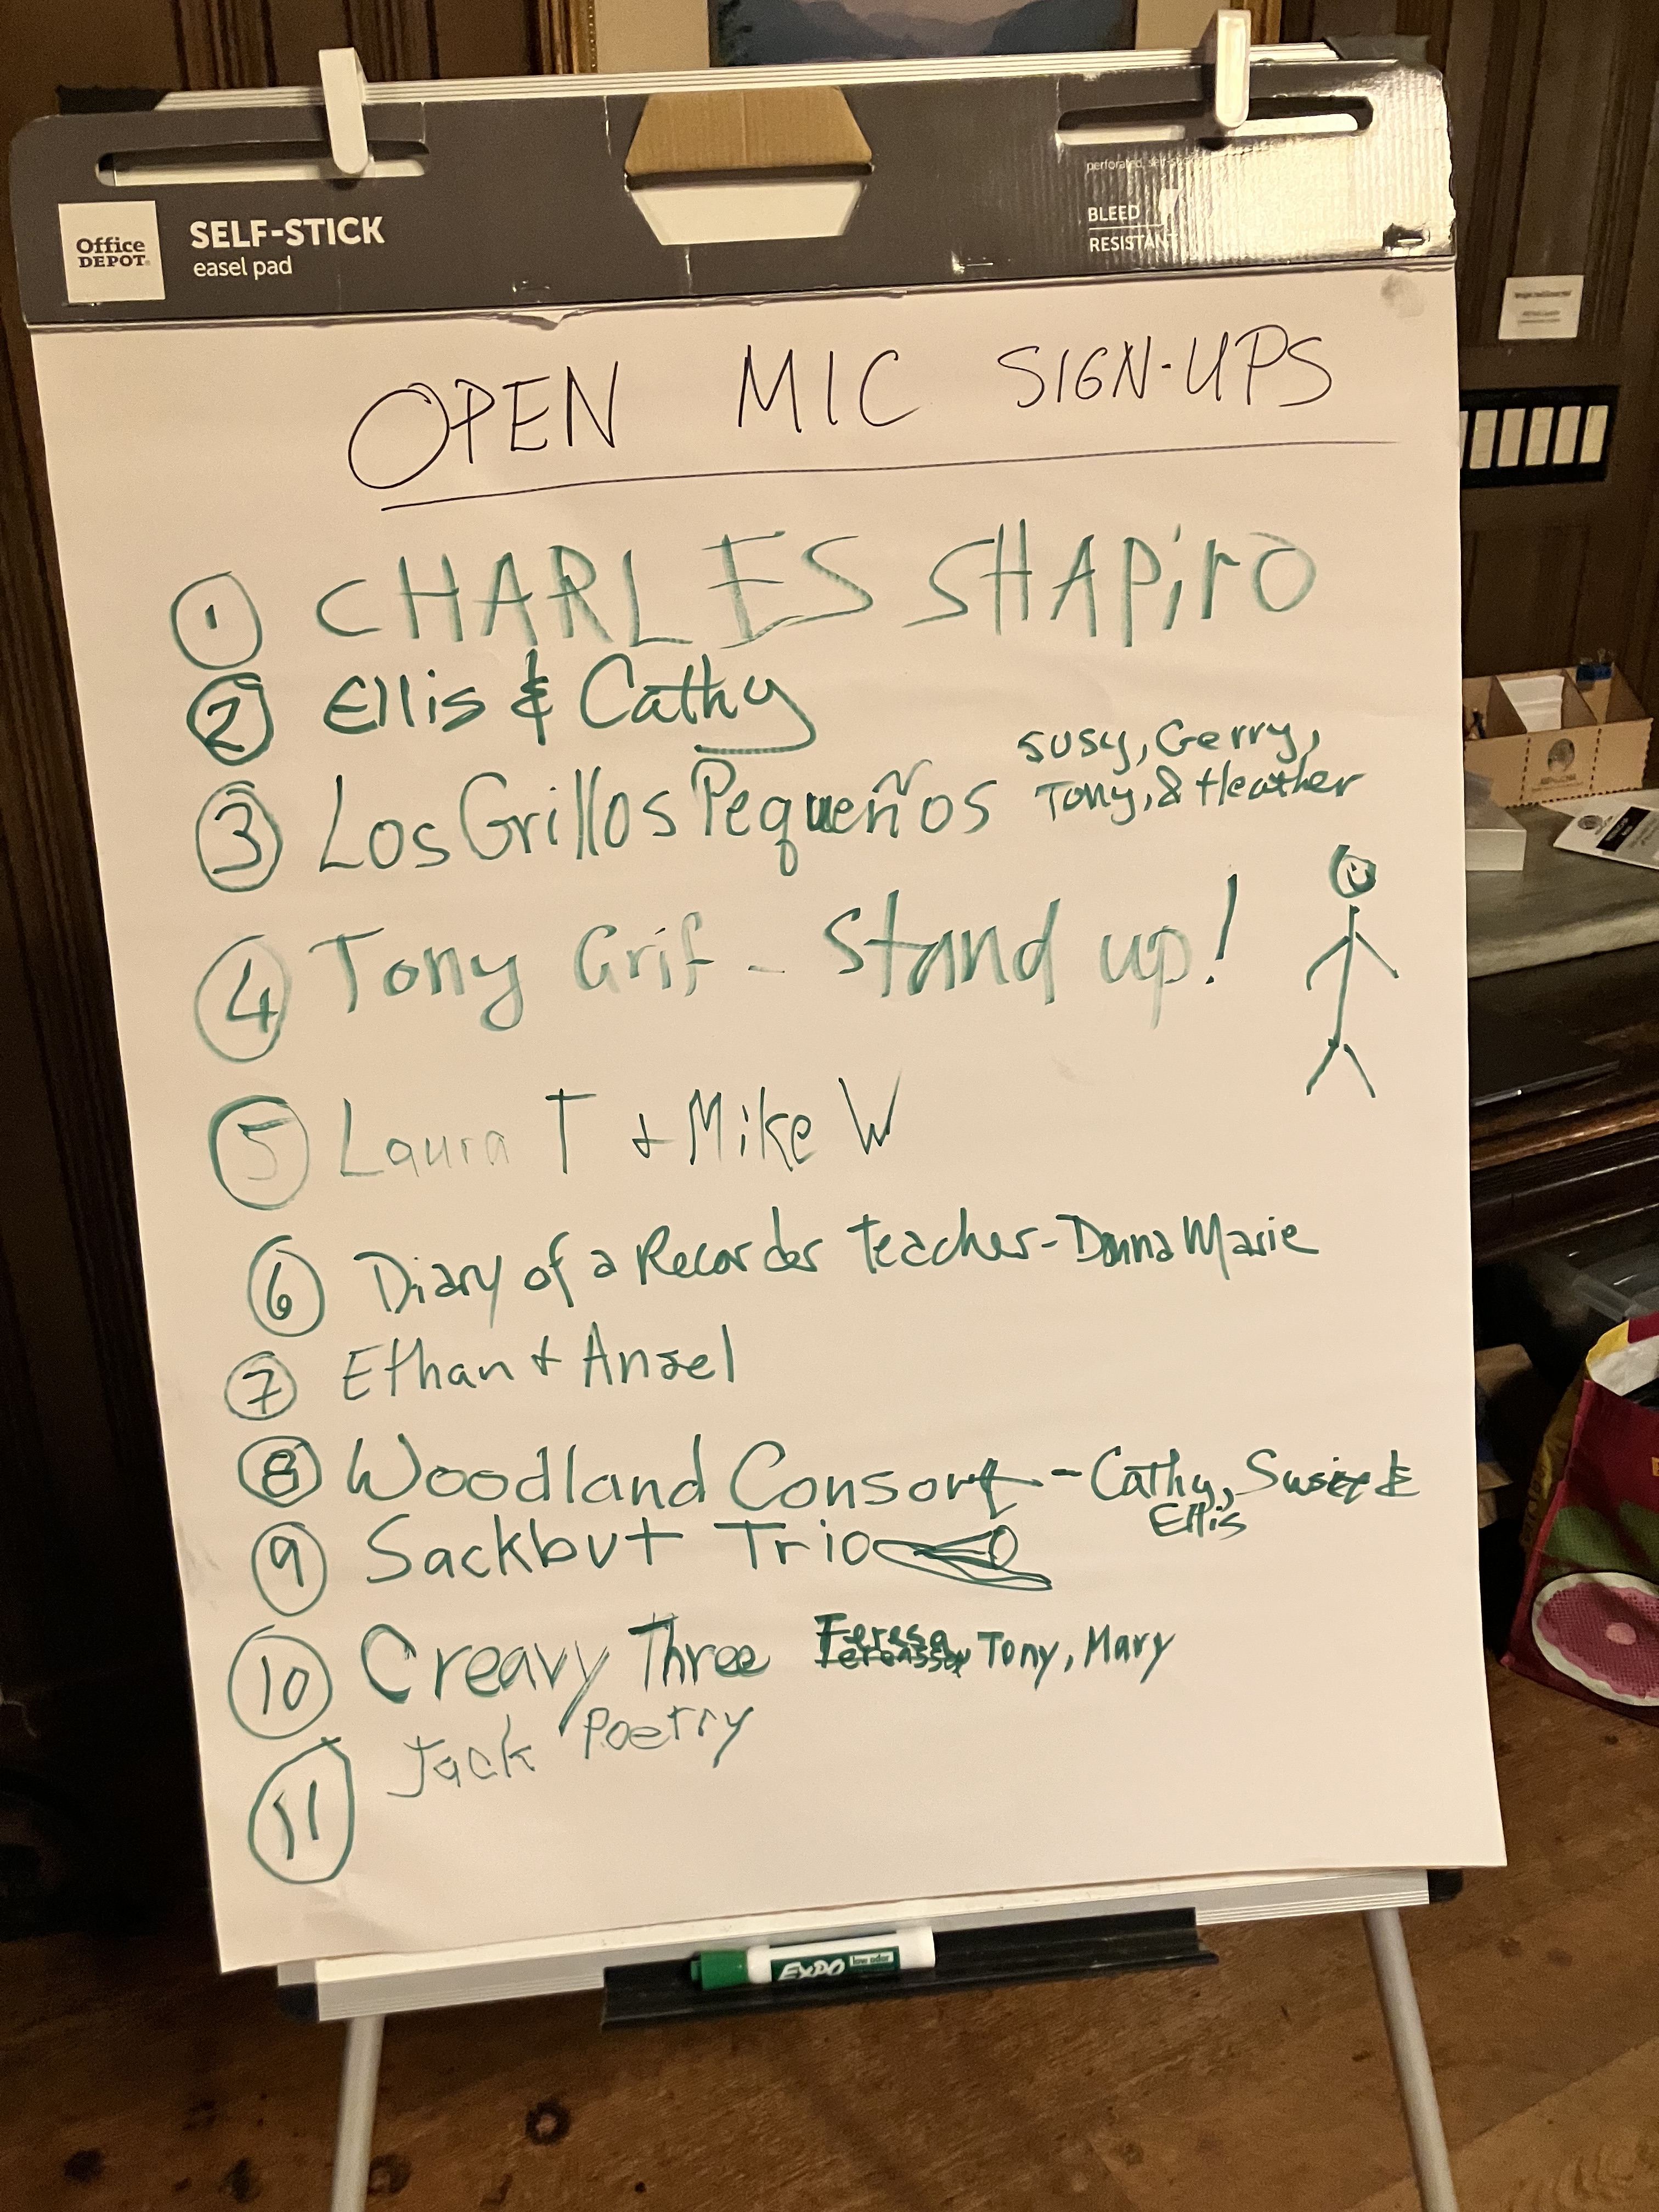 Office
DEPOT
SELF-STICK
easel pad
perforated, self-s
BLEED
RESISTANT
OPEN MIC SIGN-UPS
1 CHARLES SHAPirO
2 Ellis & Cathy
3 Los Grillos Pequeños
Susy, Gerry,
Tony, & Heather
4 Tony Grif - Stand up!
5 Laura T + Mike W
6 Diary of a Recorder Teacher - Donna Marie
7 Ethan + Ansel
8 Woodland Consort - Cathy, Susie &
Ellis
9 Sackbut Trio
10 Creavy Three Teresa Tony, Mary
11 Jack Poetry
EXPO low odor